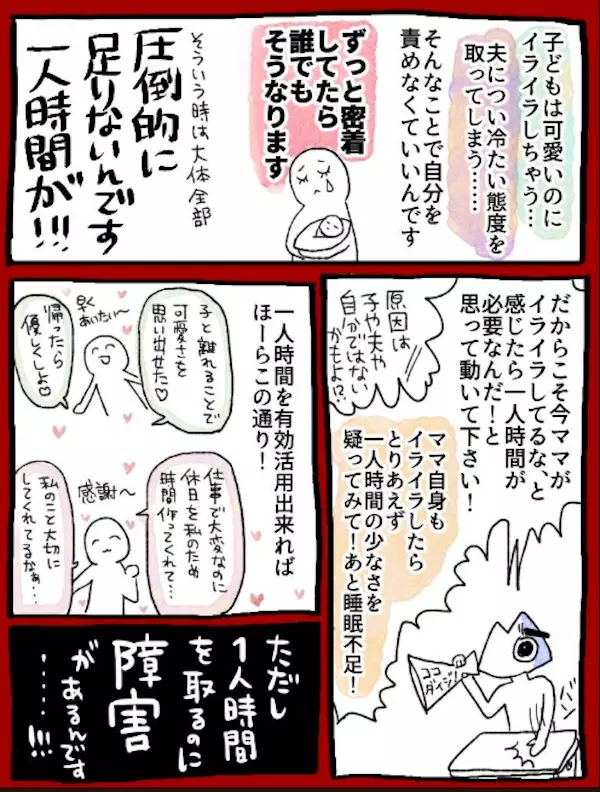 子どもは可愛いのに
イライラしちゃう…
夫につい冷たい態度を
取ってしまう……
そんなことで自分を
責めなくていいんです
ずっと密着
してたら
誰でも
そうなります
そういう時は大体全部
圧倒的に
足りないんです
一人時間が!!!
だからこそ今ママが
イライラしてるな、と
感じたら一人時間が
必要なんだ!と
思って動いて下さい!
原因は
子や夫や
自分ではない
かもよ!?
ママ自身も
イライラしたら
とりあえず
一人時間の少なさを
疑ってみて!あと睡眠不足!
ココ
ダイジ!
バン
一人時間を有効活用出来れば
ほーらこの通り!
子と離れることで
可愛さを
思い出せた♡
早く
あいたい〜
帰ったら
優しくしよ♡
仕事で大変なのに
休日を私のため
時間作ってくれて…
感謝〜
私のこと大切に
してくれてるなぁ…
ただし
1人時間
を取るのに
障害
があるんです
……!!!